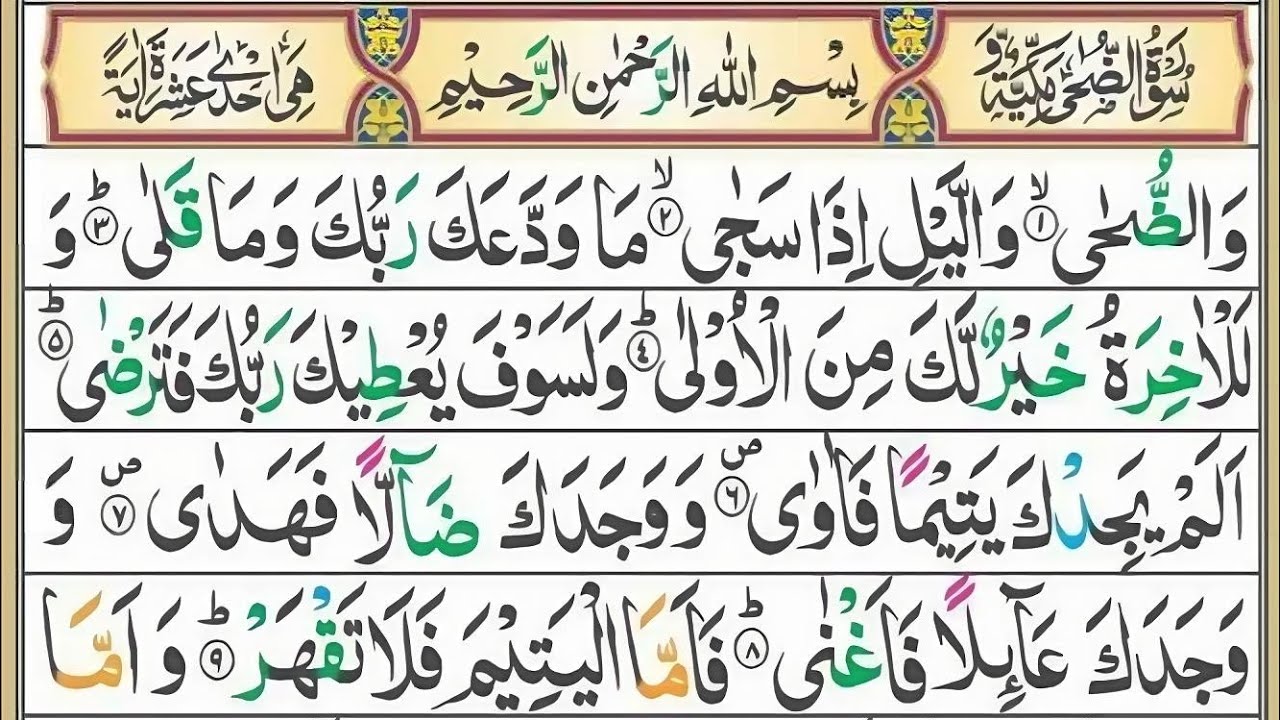 سُوْرَةُ الضُّحٰى مَكِّيَّةٌ وَّ
بِسْمِ اللّٰهِ الرَّحْمٰنِ الرَّحِيْمِ
هِىَ اِحْدٰى عَشْرَةَ اٰيَةً
وَالضُّحٰى ۙ﴿۱﴾ وَالَّيْلِ اِذَا سَجٰى ۙ﴿۲﴾ مَا وَدَّعَكَ رَبُّكَ وَمَا قَلٰى ؕ﴿۳﴾ وَ
لَلْاٰخِرَةُ خَيْرٌ لَّكَ مِنَ الْاُوْلٰى ؕ﴿۴﴾ وَلَسَوْفَ يُعْطِيْكَ رَبُّكَ فَتَرْضٰى ؕ﴿۵﴾
اَلَمْ يَجِدْكَ يَتِيْمًا فَاٰوٰى ۪﴿۶﴾ وَوَجَدَكَ ضَآلًّا فَهَدٰى ۪﴿۷﴾ وَ
وَجَدَكَ عَآئِلًا فَاَغْنٰى ؕ﴿۸﴾ فَاَمَّا الْيَتِيْمَ فَلَا تَقْهَرْ ؕ﴿۹﴾ وَ اَمَّا